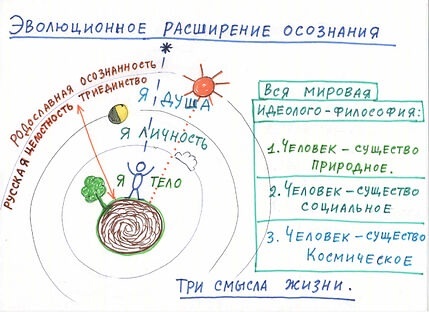 Эволюционное расширение осознания
Родославная осознанность
Русская целостность триединство
Я душа
Я личность
Я тело
Вся мировая
идеолого-философия:
1. Человек – существо
природное.
2. Человек – существо
социальное
3. Человек – существо
Космическое
Три смысла жизни.